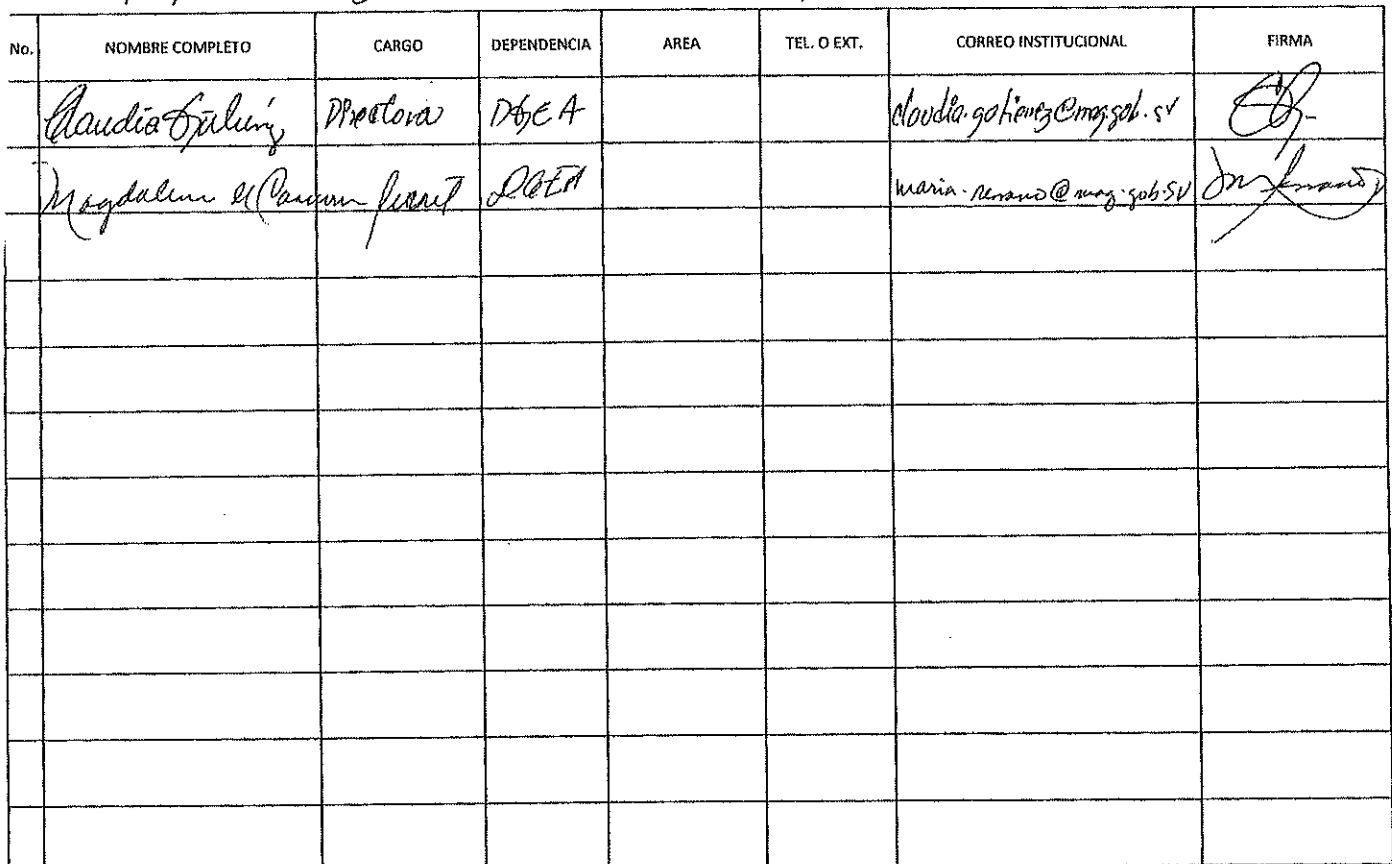 No. NOMBRE COMPLETO CARGO DEPENDENCIA AREA TEL. O EXT. CORREO INSTITUCIONAL FIRMA
Claudia Directora DGEA claudia.gutierrez@mag.gob.sv
Magdalena del Carmen DGEA maria.serrano@mag.gob.sv